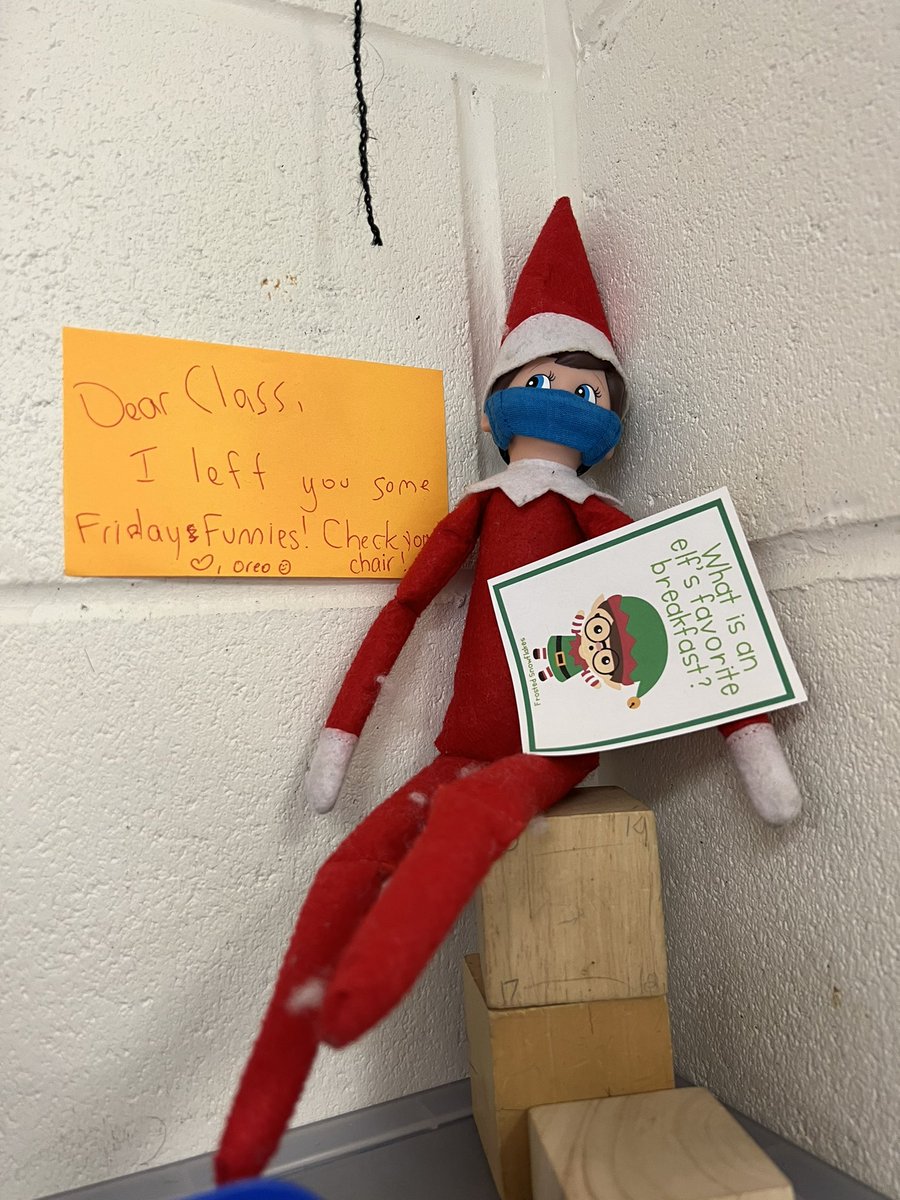 Dear Class,
I left you some
Fridays Funnies! Check your
♡, Oreo ☺ chair!
What is an
elf's favorite
breakfast?
Frosted Snowflakes